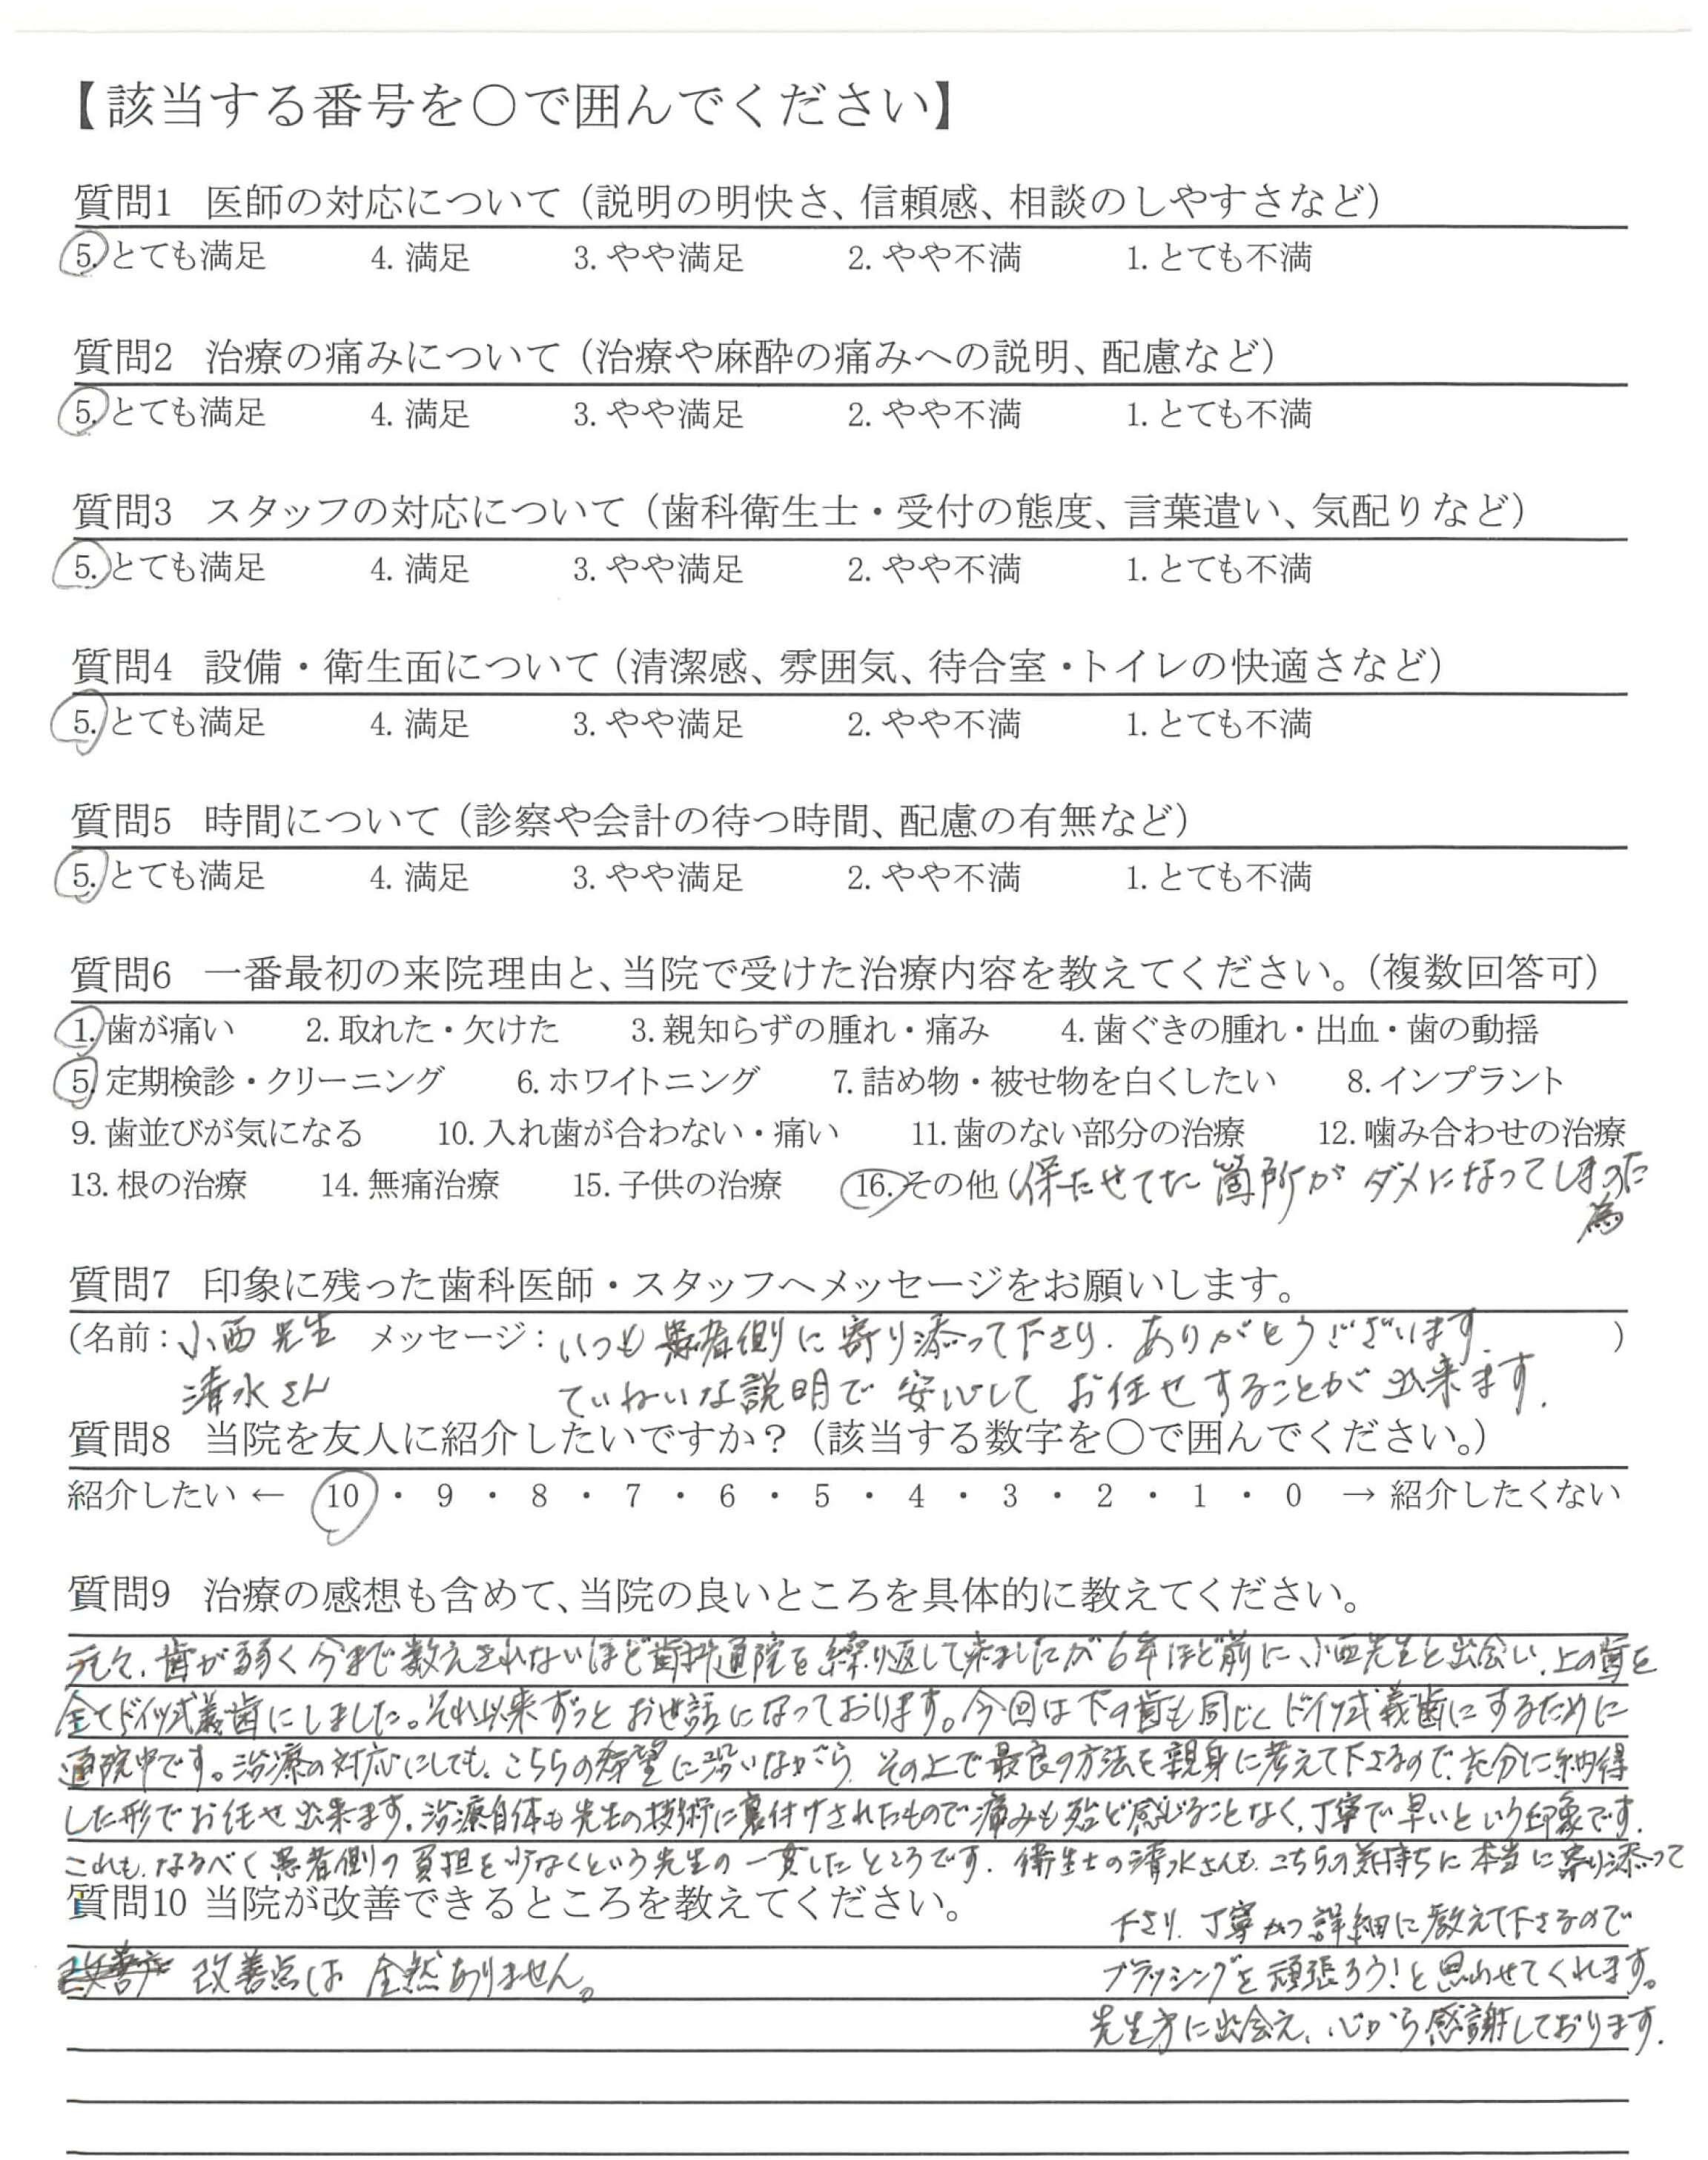 【該当する番号を○で囲んでください】
質問1 医師の対応について（説明の明快さ、信頼感、相談のしやすさなど）
5. とても満足 4. 満足 3. やや満足 2. やや不満 1. とても不満
質問2 治療の痛みについて（治療や麻酔の痛みへの説明、配慮など）
5. とても満足 4. 満足 3. やや満足 2. やや不満 1. とても不満
質問3 スタッフの対応について（歯科衛生士・受付の態度、言葉遣い、気配りなど）
5. とても満足 4. 満足 3. やや満足 2. やや不満 1. とても不満
質問4 設備・衛生面について（清潔感、雰囲気、待合室・トイレの快適さなど）
5. とても満足 4. 満足 3. やや満足 2. やや不満 1. とても不満
質問5 時間について（診察や会計の待つ時間、配慮の有無など）
5. とても満足 4. 満足 3. やや満足 2. やや不満 1. とても不満
質問6 一番最初の来院理由と、当院で受けた治療内容を教えてください。（複数回答可）
1. 歯が痛い 2. 取れた・欠けた 3. 親知らずの腫れ・痛み 4. 歯ぐきの腫れ・出血・歯の動揺
5. 定期検診・クリーニング 6. ホワイトニング 7. 詰め物・被せ物を白くしたい 8. インプラント
9. 歯並びが気になる 10. 入れ歯が合わない・痛い 11. 歯のない部分の治療 12. 噛み合わせの治療
13. 根の治療 14. 無痛治療 15. 子供の治療 16. その他（保たせてた箇所がダメになってしまった
為
質問7 印象に残った歯科医師・スタッフへメッセージをお願いします。
（名前：小西先生 メッセージ：いつも患者側に寄り添って下さり、ありがとうございます。 ）
清水さん ていねいな説明で安心してお任せすることが出来ます。
質問8 当院を友人に紹介したいですか？（該当する数字を○で囲んでください。）
紹介したい ← 10 ・ 9 ・ 8 ・ 7 ・ 6 ・ 5 ・ 4 ・ 3 ・ 2 ・ 1 ・ 0 → 紹介したくない
質問9 治療の感想も含めて、当院の良いところを具体的に教えてください。
元々、歯が弱く今まで数えきれないほど歯科通院を繰り返して来ましたが6年ほど前に、小西先生と出会い、上の歯を
全てドイツ式義歯にしました。それ以来ずっとお世話になっております。今回は下の歯も同じくドイツ式義歯にするために
通院中です。治療の対応にしても、こちらの希望に沿いながら、その上で最良の方法を親身に考えて下さるので、充分に納得
した形でお任せ出来ます。治療自体も先生の技術に裏付けされたもので痛みも殆ど感じることなく、丁寧で早いという印象です。
これも、なるべく患者側の負担を少なくという先生の一貫したところです。衛生士の清水さんも、こちらの気持ちに本当に寄り添って
下さり、丁寧かつ詳細に教えて下さるので
ブラッシングを頑張ろう！と思わせてくれます。
先生方に出会え、心から感謝しております。
質問10 当院が改善できるところを教えてください。
改善点は全然ありません。